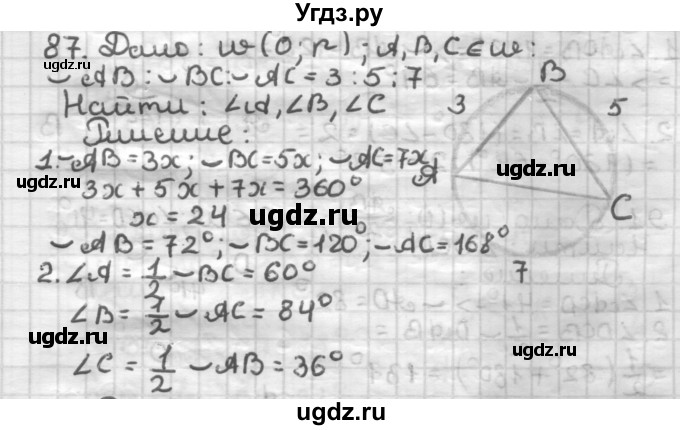 Угдз.ру
87. Дано: w(O, r); A, B, C ∈ w:
◡AB : ◡BC : ◡AC = 3 : 5 : 7
Найти: ∠A, ∠B, ∠C
Решение:
1. ◡AB = 3x; ◡BC = 5x; ◡AC = 7x
3x + 5x + 7x = 360°
x = 24
◡AB = 72°; ◡BC = 120°; ◡AC = 168°
2. ∠A = 1/2 ◡BC = 60°
∠B = 1/2 ◡AC = 84°
∠C = 1/2 ◡AB = 36°
B
3
5
A
C
7
ugdz.ru
ugdz.ru
ugdz.ru
ugdz.ru
ugdz.ru
ugdz.ru